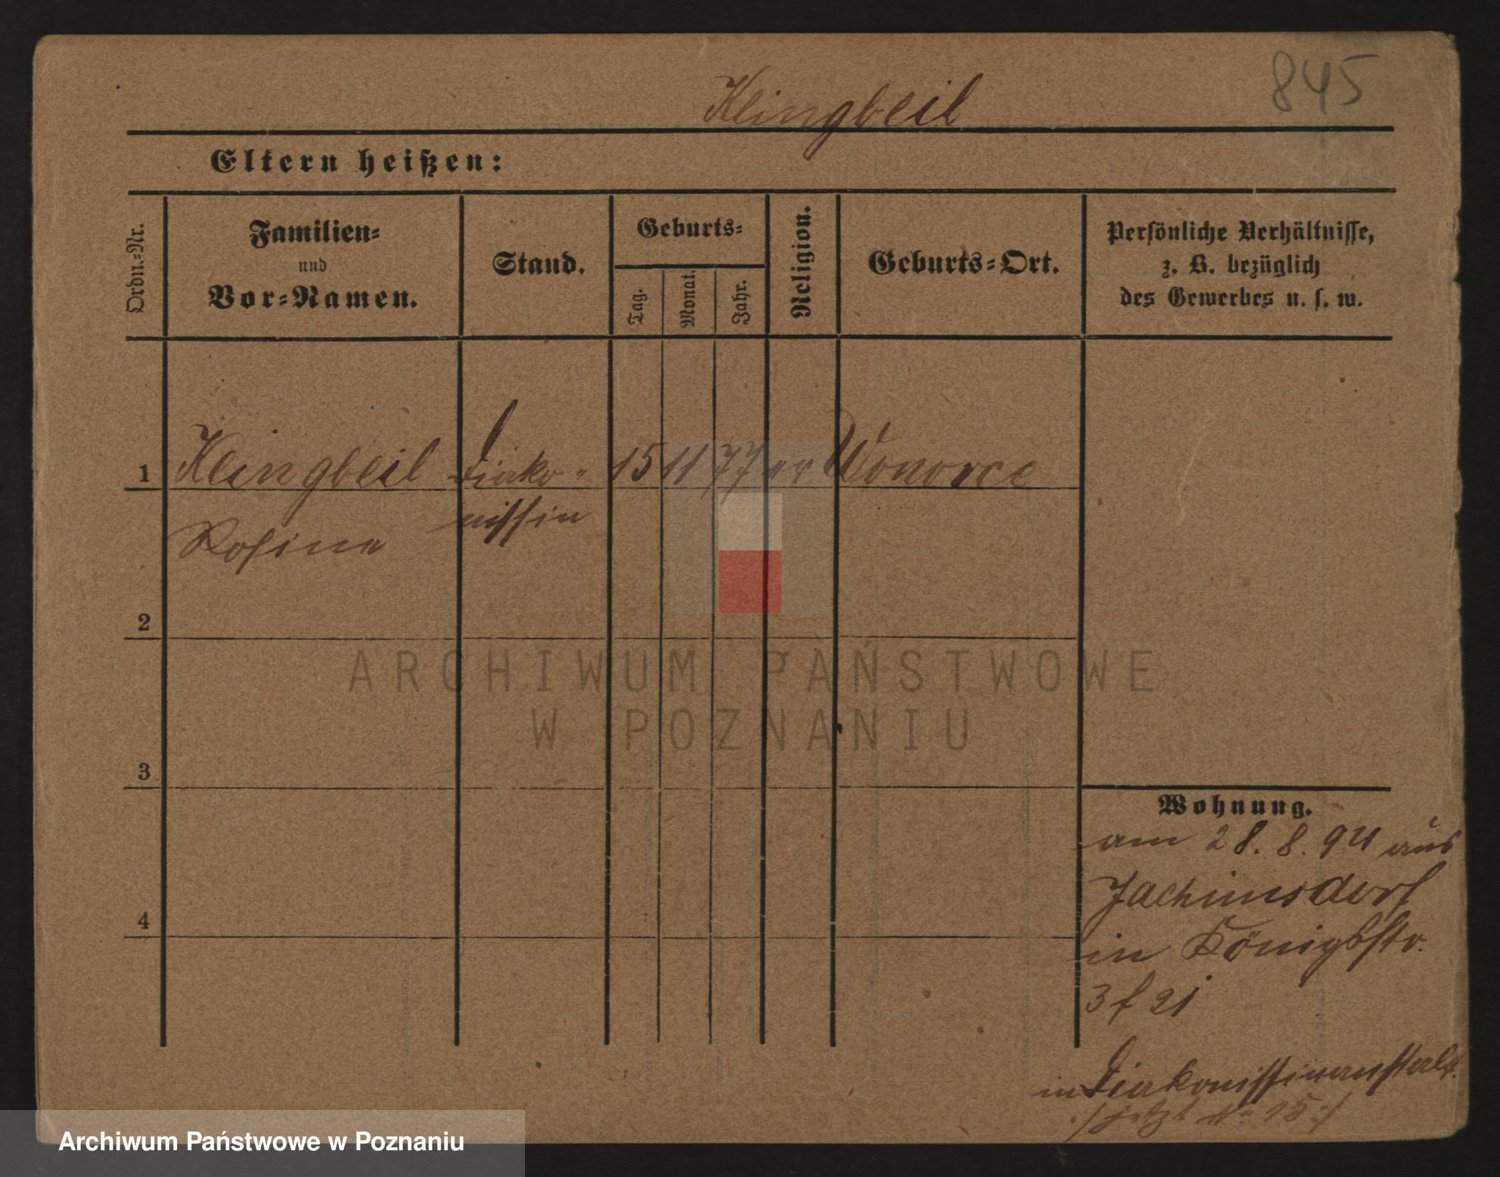 845
Klingbeil
Eltern heißen:
Ordn.-Nr.
Familien-
und
Vor-Namen.
Stand.
Geburts-
Tag.
Monat.
Jahr.
Religion.
Geburts-Ort.
Persönliche Verhältnisse,
z. B. bezüglich
des Gewerbes u. s. w.
1 Klingbeil Diako- 15 11 77 ev Wonorce
Rosina nissin
2
ARCHIWUM PAŃSTWOWE
W POZNANIU
3
Wohnung.
am 28. 8. 94 aus
Jachimsdorf
in Königstr.
4
in Diakonissinanstalt
/:jetzt No 15:/
Archiwum Państwowe w Poznaniu